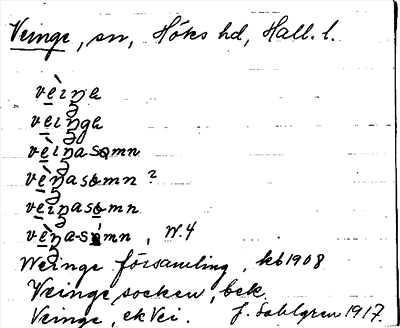 Veinge, sn, Höks hd, Hall. l.
vèiŋə
veiŋgə
vèiŋasomn
vèŋasomn ?
veiŋasomn
vèŋa-sòmn, W.4
Weinge församling, kb 1908
Veinge socken, bek.
Veinge, ek Vei. J. Sahlgren 1917.